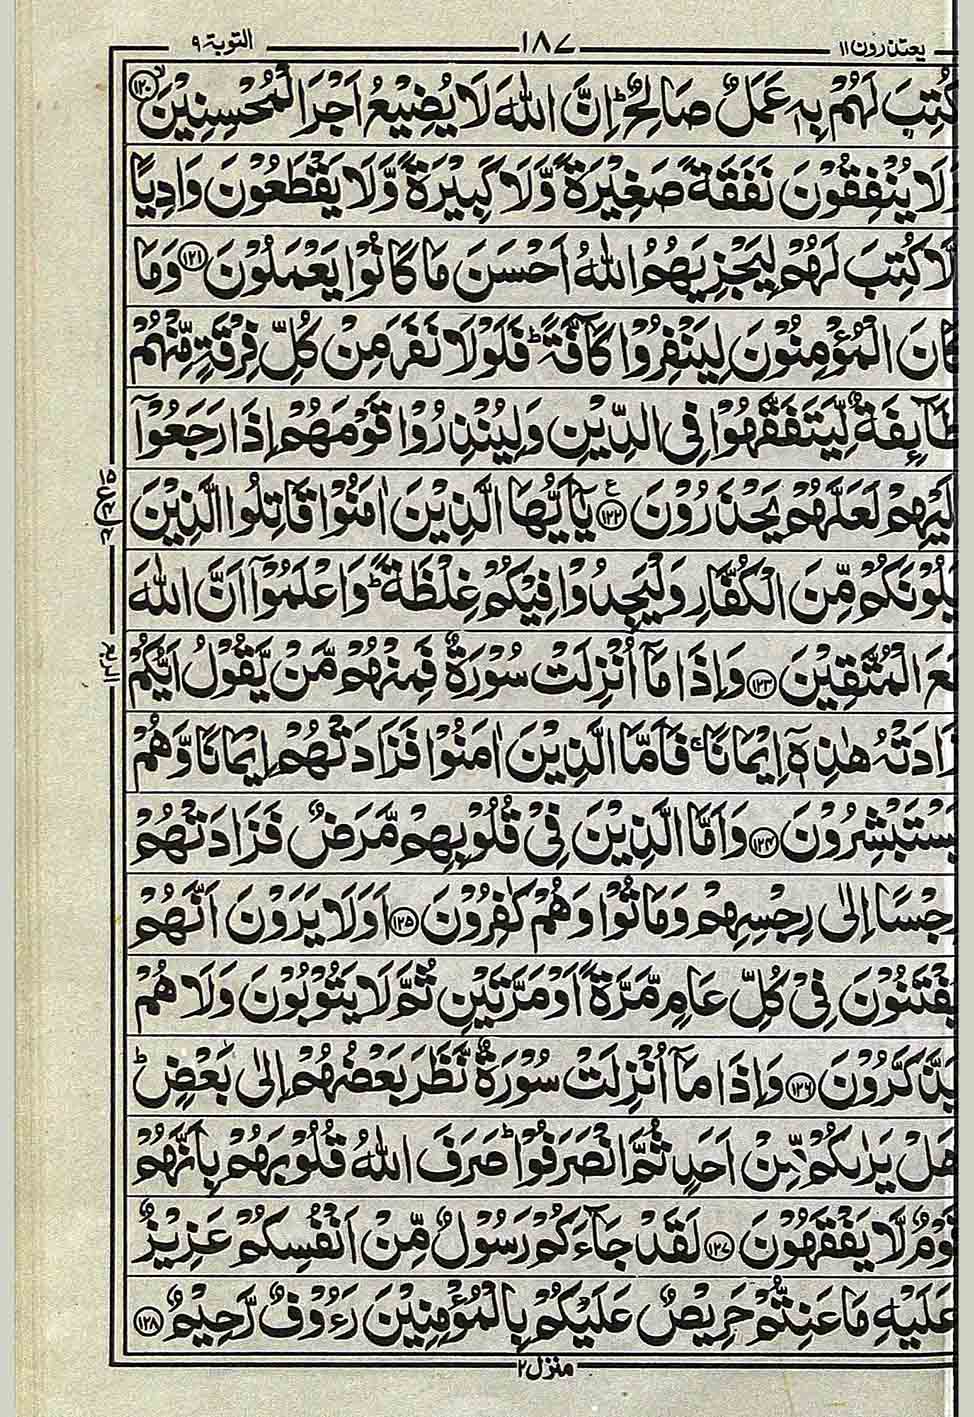 يعتذرون ١١ ١٨٧ التوبة ٩
كُتِبَ لَهُمْ بِهٖ عَمَلٌ صَالِحٌ ؕ اِنَّ اللّٰهَ لَا يُضِيْعُ اَجْرَ الْمُحْسِنِيْنَ ۙ﴿۱۲۰﴾
وَلَا يُنْفِقُوْنَ نَفَقَةً صَغِيْرَةً وَّلَا كَبِيْرَةً وَّلَا يَقْطَعُوْنَ وَادِيًا
اِلَّا كُتِبَ لَهُمْ لِيَجْزِيَهُمُ اللّٰهُ اَحْسَنَ مَا كَانُوْا يَعْمَلُوْنَ ﴿۱۲۱﴾ وَمَا
كَانَ الْمُؤْمِنُوْنَ لِيَنْفِرُوْا كَآفَّةً ؕ فَلَوْلَا نَفَرَ مِنْ كُلِّ فِرْقَةٍ مِّنْهُمْ
طَآىِٕفَةٌ لِّيَتَفَقَّهُوْا فِى الدِّيْنِ وَلِيُنْذِرُوْا قَوْمَهُمْ اِذَا رَجَعُوْۤا
اِلَيْهِمْ لَعَلَّهُمْ يَحْذَرُوْنَ ﴿۱۲۲﴾ ع يٰۤاَيُّهَا الَّذِيْنَ اٰمَنُوْا قَاتِلُوا الَّذِيْنَ
يَلُوْنَكُمْ مِّنَ الْكُفَّارِ وَلْيَجِدُوْا فِيْكُمْ غِلْظَةً ؕ وَاعْلَمُوْۤا اَنَّ اللّٰهَ
مَعَ الْمُتَّقِيْنَ ﴿۱۲۳﴾ وَاِذَا مَاۤ اُنْزِلَتْ سُوْرَةٌ فَمِنْهُمْ مَّنْ يَّقُوْلُ اَيُّكُمْ
زَادَتْهُ هٰذِهٖۤ اِيْمَانًا ۚ فَاَمَّا الَّذِيْنَ اٰمَنُوْا فَزَادَتْهُمْ اِيْمَانًا وَّهُمْ
يَسْتَبْشِرُوْنَ ﴿۱۲۴﴾ وَاَمَّا الَّذِيْنَ فِيْ قُلُوْبِهِمْ مَّرَضٌ فَزَادَتْهُمْ
رِجْسًا اِلٰى رِجْسِهِمْ وَمَاتُوْا وَهُمْ كٰفِرُوْنَ ﴿۱۲۵﴾ اَوَلَا يَرَوْنَ اَنَّهُمْ
يُفْتَنُوْنَ فِيْ كُلِّ عَامٍ مَّرَّةً اَوْ مَرَّتَيْنِ ثُمَّ لَا يَتُوْبُوْنَ وَلَا هُمْ
يَذَّكَّرُوْنَ ﴿۱۲۶﴾ وَاِذَا مَاۤ اُنْزِلَتْ سُوْرَةٌ نَّظَرَ بَعْضُهُمْ اِلٰى بَعْضٍ ؕ
هَلْ يَرٰىكُمْ مِّنْ اَحَدٍ ثُمَّ انْصَرَفُوْا ؕ صَرَفَ اللّٰهُ قُلُوْبَهُمْ بِاَنَّهُمْ
قَوْمٌ لَّا يَفْقَهُوْنَ ﴿۱۲۷﴾ لَقَدْ جَآءَكُمْ رَسُوْلٌ مِّنْ اَنْفُسِكُمْ عَزِيْزٌ
عَلَيْهِ مَا عَنِتُّمْ حَرِيْصٌ عَلَيْكُمْ بِالْمُؤْمِنِيْنَ رَءُوْفٌ رَّحِيْمٌ ﴿۱۲۸﴾
الربع
منزل ٢